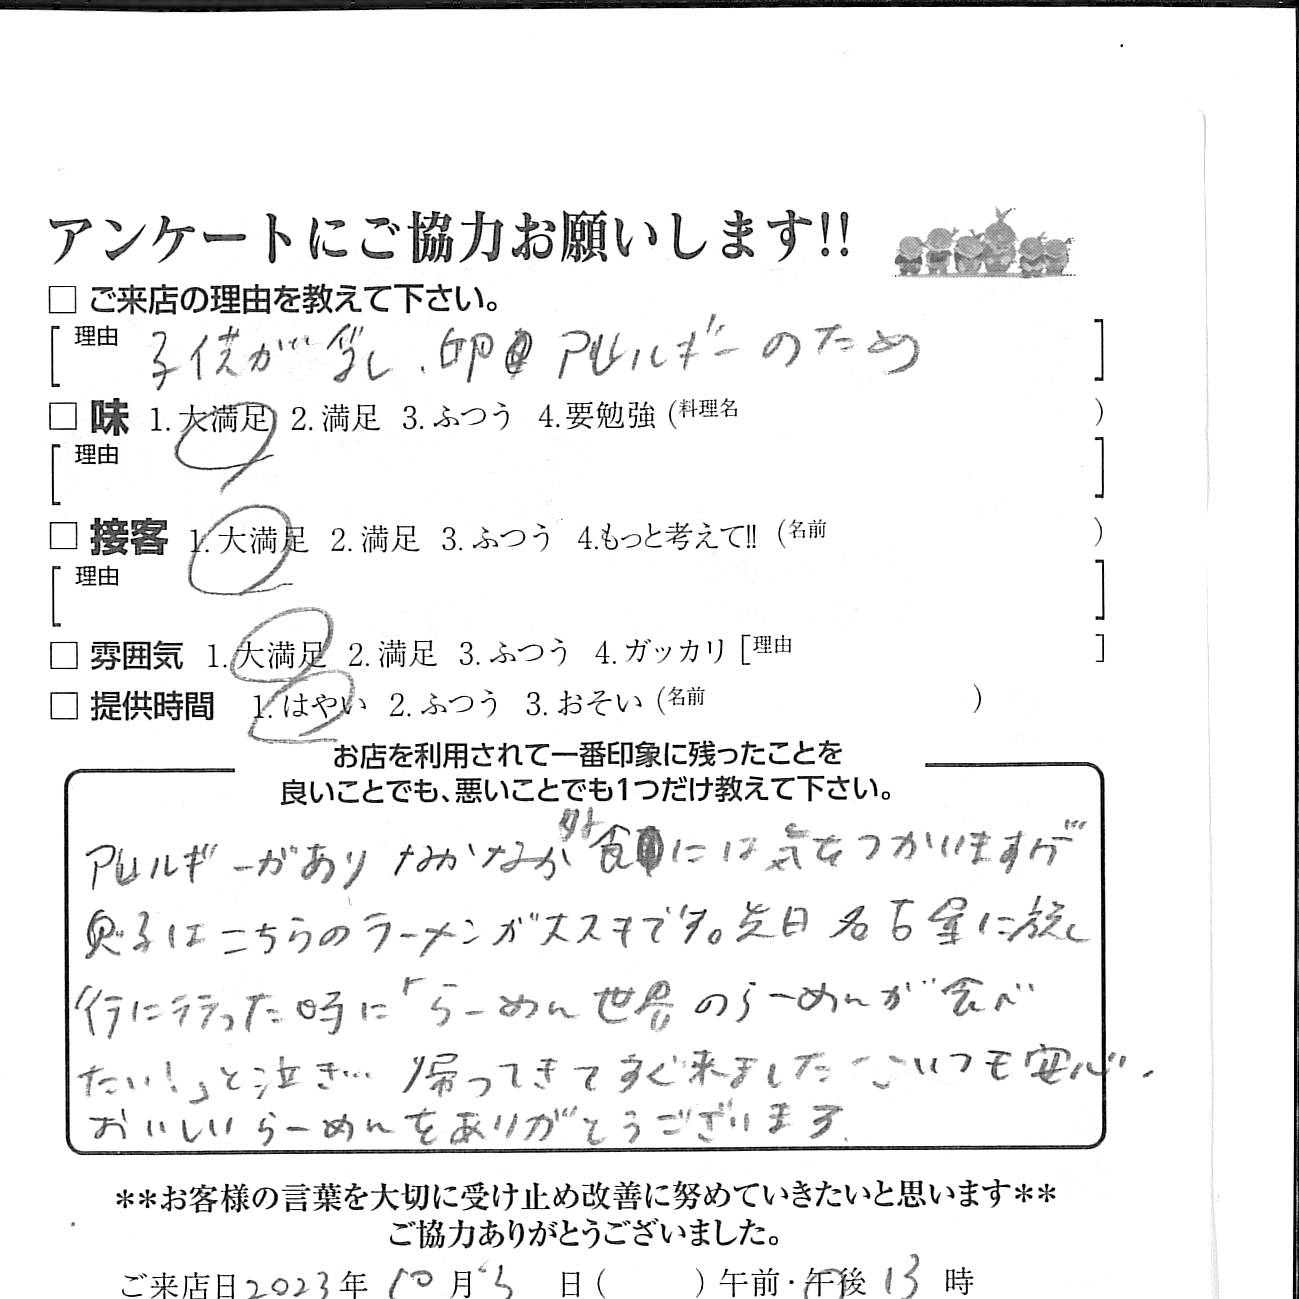 アンケートにご協力お願いします!!
□ ご来店の理由を教えて下さい。
理由 子供が乳し、卵 アレルギーのため
□ 味 1.大満足 2.満足 3.ふつう 4.要勉強 (料理名 )
理由
□ 接客 1.大満足 2.満足 3.ふつう 4.もっと考えて!! (名前 )
理由
□ 雰囲気 1.大満足 2.満足 3.ふつう 4.ガッカリ [理由 ]
□ 提供時間 1.はやい 2.ふつう 3.おそい (名前 )
お店を利用されて一番印象に残ったことを
良いことでも、悪いことでも1つだけ教えて下さい。
アレルギーがあり なかなか外食には気をつかいますが
息子はこちらのラーメンが大スキです。先日名古屋に旅し
行に行った時に「らーめん世界のらーめんが食べ
たい!」と泣き… 帰ってきてすぐ来ました いつも安心、
おいしいらーめんをありがとうございます。
**お客様の言葉を大切に受け止め改善に努めていきたいと思います**
ご協力ありがとうございました。
ご来店日2023年 10月 日( ) 午前・午後 13時